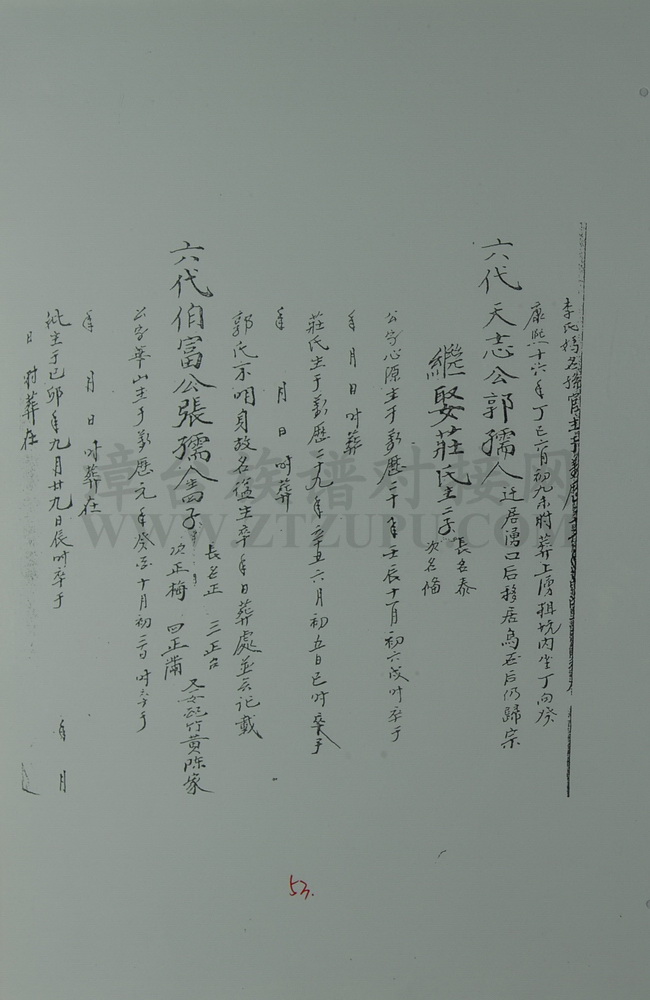 李氏媽名孺官生于萬歷
康熙十六年丁巳六月初九未時葬上湧祖坟内坐丁向癸
六代天志公郭孺人 迁居湧口后移居烏石后仍歸宗
繼娶莊氏生二子 長名泰
次名偹
公字心源生于萬歷二十年壬辰十一月初六戌时卒于
年 月 日 时葬
莊氏生于萬歷二十九年辛丑六月初五日巳时卒于
年 月 日 时葬
郭氏不明身故名諡生卒年日葬處並无记載
六代伯富公張孺人生四子 長名正 三正台
次正梅 四正滿
又女配竹黄陈家
公字華山生于萬歷元年癸酉十月初三日时卒于
年 月 日 时葬在
妣生于己卯年九月廿九日辰时卒于 年 月
日 时葬在
53.
章台族谱对接网
WWW.ZTZUPU.COM